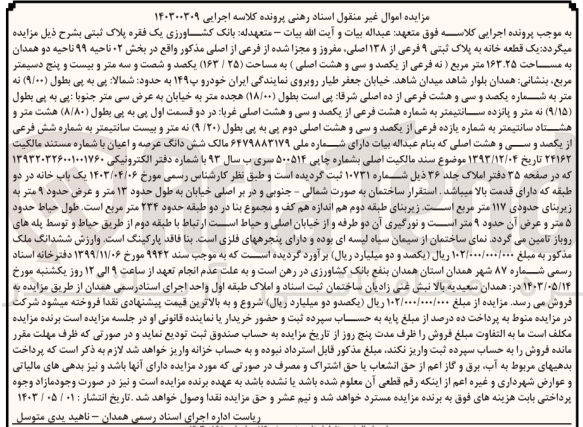 مزایده اموال غیر منقول اسناد رهنی پرونده کلاسه اجرایی ۱۴۰۳۰۰۳۰۹
به موجب پرونده اجرایی کلاسه فوق متعهد: عبداله بیات و آیت الله بیات – متعهدله: بانک کشاورزی یک فقره پلاک ثبتی بشرح ذیل مزایده
میگردد: یک قطعه خانه به پلاک ثبتی ۹ فرعی از ۱۳۸ اصلی، مفروز و مجزا شده از فرعی از اصلی مذکور واقع در بخش ۰۲ ناحیه ۹۹ ناحیه دو همدان
به مساحت ۱۶۳.۲۵ متر مربع ( نه فرعی از یکصد و سی و هشت اصلی ) به مساحت (۲۵ / ۱۶۳) یکصد و شصت و سه متر و بیست و پنج دسیمتر
مربع، بنشانی: همدان بلوار شاهد میدان شاهد. خیابان جعفر طیار روبروی نمایندگی ایران خودرو پ۱۴۹ به حدود: شمالا: پی به پی بطول (۹/۰۰) نه
متر به شماره یکصد و سی و هشت فرعی از ده اصلی شرقا: پی است بطول (۱۸/۰۰) هجده متر به خیابان به عرض سی متر جنوبا :پی به پی بطول
(۹/۱۵) نه متر و پانزده سانتیمتر به شماره هشت فرعی از یکصد و سی و هشت اصلی غربا: در دو قسمت اول پی به پی بطول (۸/۸۰) هشت متر و
هشتاد سانتیمتر به شماره یازده فرعی از یکصد و سی و هشت اصلی دوم پی به پی بطول (۲۰/ ۹) نه متر و بیست سانتیمتر به شماره شش فرعی
از یکصد و سی و هشت اصلی که بنام عبداله بیات دارای شماره ملی ۶۴۷۹۸۸۳۱۷۹ مالک شش دانگ عرصه و اعیان با شماره مستند مالکیت
۲۴۱۶۲ تاریخ ۱۳۹۳/۱۲/۰۴ موضوع سند مالکیت اصلی بشماره چاپی ۵۰۰۵۱۴ سری ب سال ۹۳ با شماره دفتر الکترونیکی ۱۳۹۳۲۰۳۲۶۰۰۱۰۰۱۷۶۰
که در صفحه ۳۵ دفتر املاک جلد ۳۶ ذیل شماره ۱۰۷۳۱ ثبت گردیده است و طبق نظر کارشناس رسمی مورخ ۱۴۰۳/۰۴/۰۶ یک باب خانه در دو
طبقه که دارای قدمت بالا میباشد . استقرار ساختمان به صورت شمالی – جنوبی و در بر اصلی خیابان به طول حدود ۱۳ متر و عرض حدود ۹ متر به
زیربنای حدودی ۱۱۷ متر مربع است. زیربنای طبقه دوم هم اندازه هم کف و مجموع بنا در دو طبقه حدود ۲۳۴ متر مربع است. طول حیاط حدود
۵ متر و عرض آن حدود ۹ متر است و نورگیری آن دو طرفه و از خیابان اصلی و حیاط است ارتباط با طبقه دوم از طریق حیاط و توسط پله های
روباز تامین می گردد. نمای ساختمان از سیمان سیاه لیسه ای بوده و دارای پنجرههای فلزی است. بنا فاقد پارکینگ است. وارزش ششدانگ ملک
مذکور به مبلغ ۱۰۲/۰۰۰/۰۰۰/۰۰۰ ریال (یکصد و دو میلیارد ریال) برآورد گردیده است که به موجب سند ۹۹۴۲ مورخ ۱۳۹۹/۱۱/۰۶ دفترخانه اسناد
رسمی شماره ۸۷ شهر همدان استان همدان بنفع بانک کشاورزی در رهن است و به علت عدم انجام تعهد از ساعت ۹ الی ۱۲ روز یکشنبه مورخ
۱۴۰۳/۰۵/۱۴ در: همدان سعیدیه بالا نبش علی زادیان ساختمان ثبت اسناد و املاک طبقه اول واحد اجرای اسنادرسمی همدان از طریق مزایده به
فروش می رسد. مزایده از مبلغ ۱۰۲/۰۰۰/۰۰۰/۰۰۰ ریال (یکصدو دو میلیارد ریال) شروع و به بالاترین قیمت پیشنهادی نقدا فروخته میشود شرکت
در مزایده منوط به پرداخت ده درصد از مبلغ پایه به حساب سپرده ثبت و حضور خریدار یا نماینده قانونی او در جلسه مزایده است برنده مزایده
مکلف است ما به التفاوت مبلغ فروش را ظرف مدت پنج روز از تاریخ مزایده به حساب صندوق ثبت تودیع نماید و در صورتی که ظرف مهلت مقرر
مانده فروش را به حساب سپرده ثبت واریز نکند، مبلغ مذکور قابل استرداد نبوده و به حساب خزانه واریز خواهد شد لازم به ذکر است که پرداخت
بدهیهای مربوط به آب، برق و گاز اعم از حق انشعاب یا حق اشتراک و مصرف در صورتی که مورد مزایده دارای آنها باشد و نیز بدهی های مالیاتی
و عوارض شهرداری و غیره اعم از اینکه رقم قطعی آن معلوم شده باشد یا نشده باشد به عهده برنده مزایده است و نیز در صورت وجودمازاد وجوه
پرداختی بابت هزینه های فوق به برنده مزایده مسترد خواهد شد و نیم عشر و حق مزایده نقدا وصول خواهد شد. تاریخ انتشار : ۰۱ / ۰۵ / ۱۴۰۳
ریاست اداره اجرای اسناد رسمی همدان – ناهید یدی متوسل